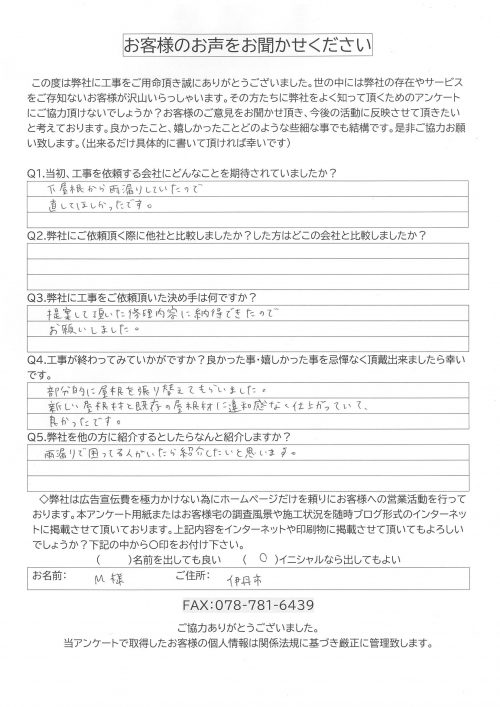 お客様のお声をお聞かせください
この度は弊社に工事をご用命頂き誠にありがとうございました。世の中には弊社の存在やサービス
をご存知ないお客様が沢山いらっしゃいます。その方たちに弊社をよく知って頂くためのアンケート
にご協力頂けないでしょうか？お客様のご意見をお聞かせ頂き、今後の活動に反映させて頂きたい
と考えております。良かったこと、嬉しかったことどのような些細な事でも結構です。是非ご協力お願
い致します。（出来るだけ具体的に書いて頂ければ幸いです）
Q1.当初、工事を依頼する会社にどんなことを期待されていましたか？
下屋根から雨漏りしていたので
直してほしかったです。
Q2.弊社にご依頼頂く際に他社と比較しましたか？した方はどこの会社と比較しましたか？
Q3.弊社に工事をご依頼頂いた決め手は何ですか？
提案して頂いた修理内容に納得できたので
お願いしました。
Q4.工事が終わってみていかがですか？良かった事・嬉しかった事を忌憚なく頂戴出来ましたら幸い
です。
部分的に屋根を張り替えてもらいました。
新しい屋根材と既存の屋根材に違和感なく仕上がっていて、
良かったです。
Q5.弊社を他の方に紹介するとしたらなんと紹介しますか？
雨漏りで困ってる人がいたら紹介したいと思います。
◇弊社は広告宣伝費を極力かけない為にホームページだけを頼りにお客様への営業活動を行って
おります。本アンケート用紙またはお客様宅の調査風景や施工状況を随時ブログ形式のインターネッ
トに掲載させて頂いております。上記内容をインターネットや印刷物に掲載させて頂いてもよろしい
でしょうか？下記の中から〇印をお付け下さい。
（　　）名前を出しても良い　（ ○ ）イニシャルなら出してもよい
お名前：　M 様　ご住所：　伊丹市
FAX：078-781-6439
ご協力ありがとうございました。
当アンケートで取得したお客様の個人情報は関係法規に基づき厳正に管理致します。